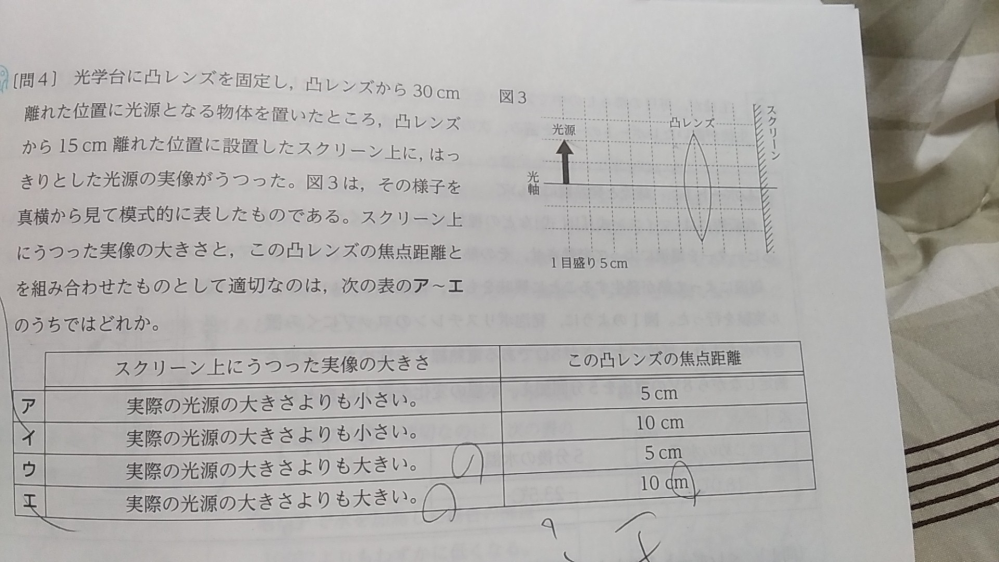 [問4] 光学台に凸レンズを固定し，凸レンズから30cm
離れた位置に光源となる物体を置いたところ，凸レンズ
から15cm離れた位置に設置したスクリーン上に，はっ
きりとした光源の実像がうつった。図3は，その様子を
真横から見て模式的に表したものである。スクリーン上
にうつった実像の大きさと，この凸レンズの焦点距離と
を組み合わせたものとして適切なのは，次の表のア〜エ
のうちではどれか。
図3
光源
凸レンズ
スクリーン
光軸
1目盛り5cm
スクリーン上にうつった実像の大きさ この凸レンズの焦点距離
ア 実際の光源の大きさよりも小さい。 5cm
イ 実際の光源の大きさよりも小さい。 10cm
ウ 実際の光源の大きさよりも大きい。 5cm
エ 実際の光源の大きさよりも大きい。 10cm